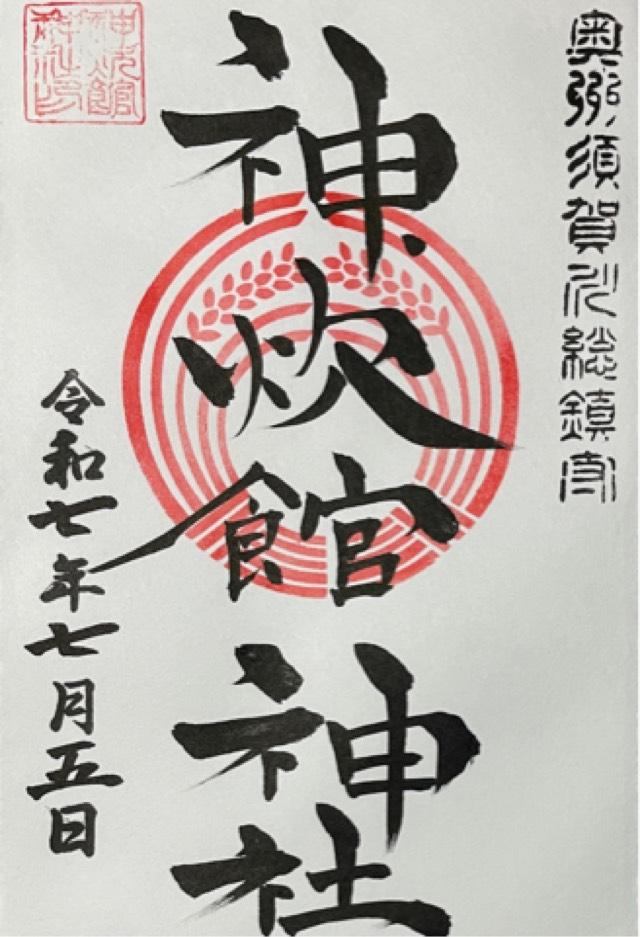 奥州須賀川総鎮守
神炊館神社
令和七年七月五日
神炊館
神社印